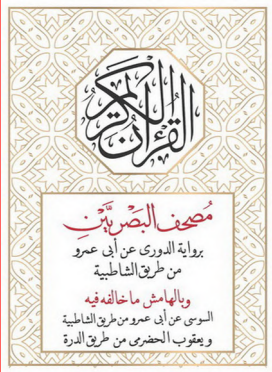 القرآن الكريم
مصحف البصريين
برواية الدورى عن أبى عمرو
من طريق الشاطبية
وبالهامش ما خالفه فيه
السوسى عن أبى عمرو من طريق الشاطبية
ويعقوب الحضرمى من طريق الدرة